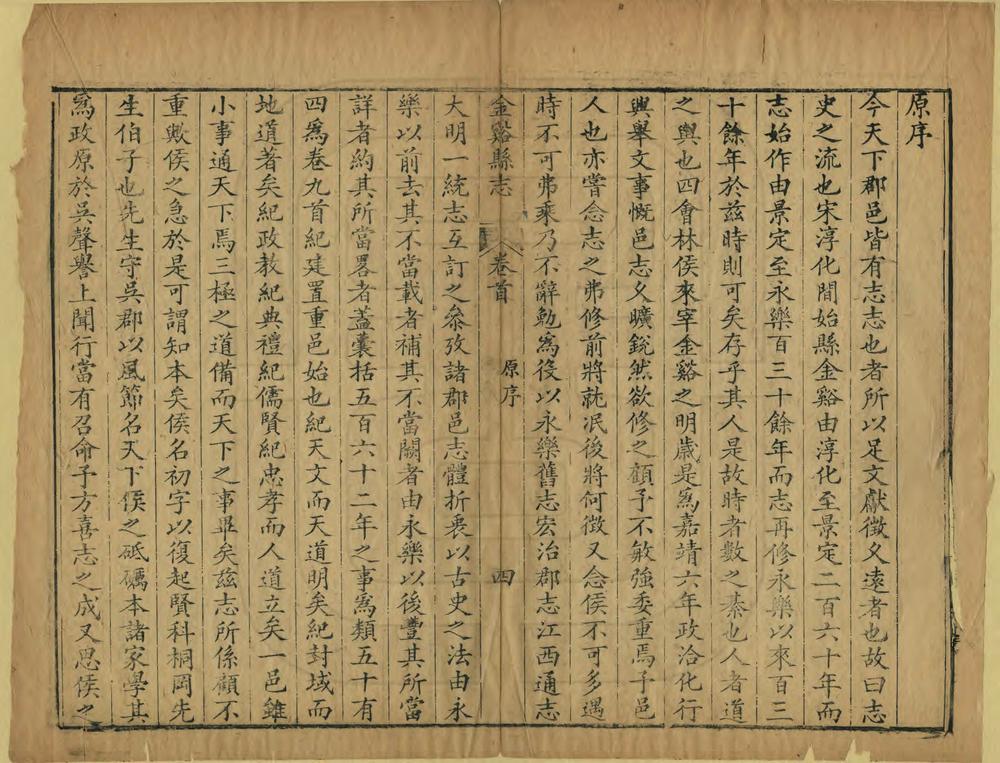 原序
今天下郡邑皆有志志也者所以足文獻徵久遠者也故曰志
史之流也宋淳化間始縣金谿由淳化至景定二百六十年而
志始作由景定至永樂百三十餘年而志再修永樂以來百三
十餘年於茲時則可矣存乎其人是故時者數之綦也人者道
之輿也四會林侯來宰金谿之明歲是為嘉靖六年政洽化行
興舉文事慨邑志久曠銳然欲修之顧予不敏強委重焉予邑
人也亦嘗念志之弗修前將就泯後將何徵又念侯不可多遇
時不可弗乘乃不辭勉為役以永樂舊志宏治郡志江西通志
金谿縣志 卷首 原序 四
大明一統志互訂之叅攷諸郡邑志體折衷以古史之法由永
樂以前去其不當載者補其不當闕者由永樂以後豐其所當
詳者約其所當畧者蓋囊括五百六十二年之事為類五十有
四為卷九首紀建置重邑始也紀天文而天道明矣紀封域而
地道著矣紀政教紀典禮紀儒賢紀忠孝而人道立矣一邑雖
小事通天下焉三極之道備而天下之事畢矣茲志所係顧不
重歟侯之急於是可謂知本矣侯名初字以復起賢科桐岡先
生伯子也先生守吳郡以風節名天下侯之砥礪本諸家學其
為政原於吳聲譽上聞行當有召命予方喜志之成又思侯之